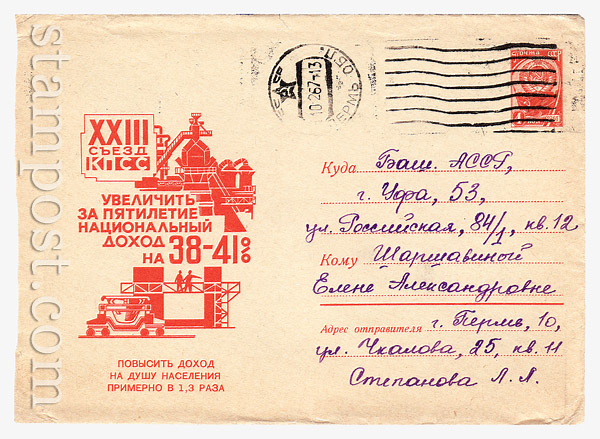 stampost.com
СССР
10267-13
ПЕРМЬ ОБЛ.
ПОЧТА СССР
4
XXIII
СЪЕЗД
КПСС
УВЕЛИЧИТЬ
ЗА ПЯТИЛЕТИЕ
НАЦИОНАЛЬНЫЙ
ДОХОД
НА 38-41%
ПОВЫСИТЬ ДОХОД
НА ДУШУ НАСЕЛЕНИЯ
ПРИМЕРНО В 1,3 РАЗА
Куда Баш. АССР,
г. Уфа, 53,
ул. Российская, 84/1, кв. 12
Кому Шаршавиной
Елене Александровне
Адрес отправителя г. Пермь, 10,
ул. Чкалова, 25, кв. 11
Степанова Л. Л.